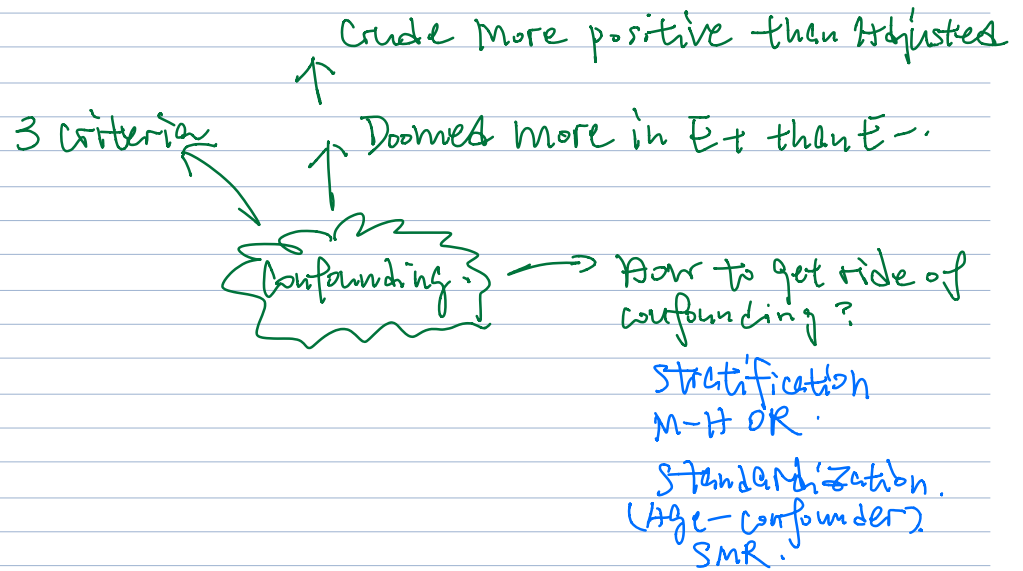 Crude More positive than Adjusted
3 criteria
Doomed more in E+ than E-.
Confounding.
How to get ride of
confounding?
Stratification
M-H OR.
Standardization.
(Age-confounder)
SMR.